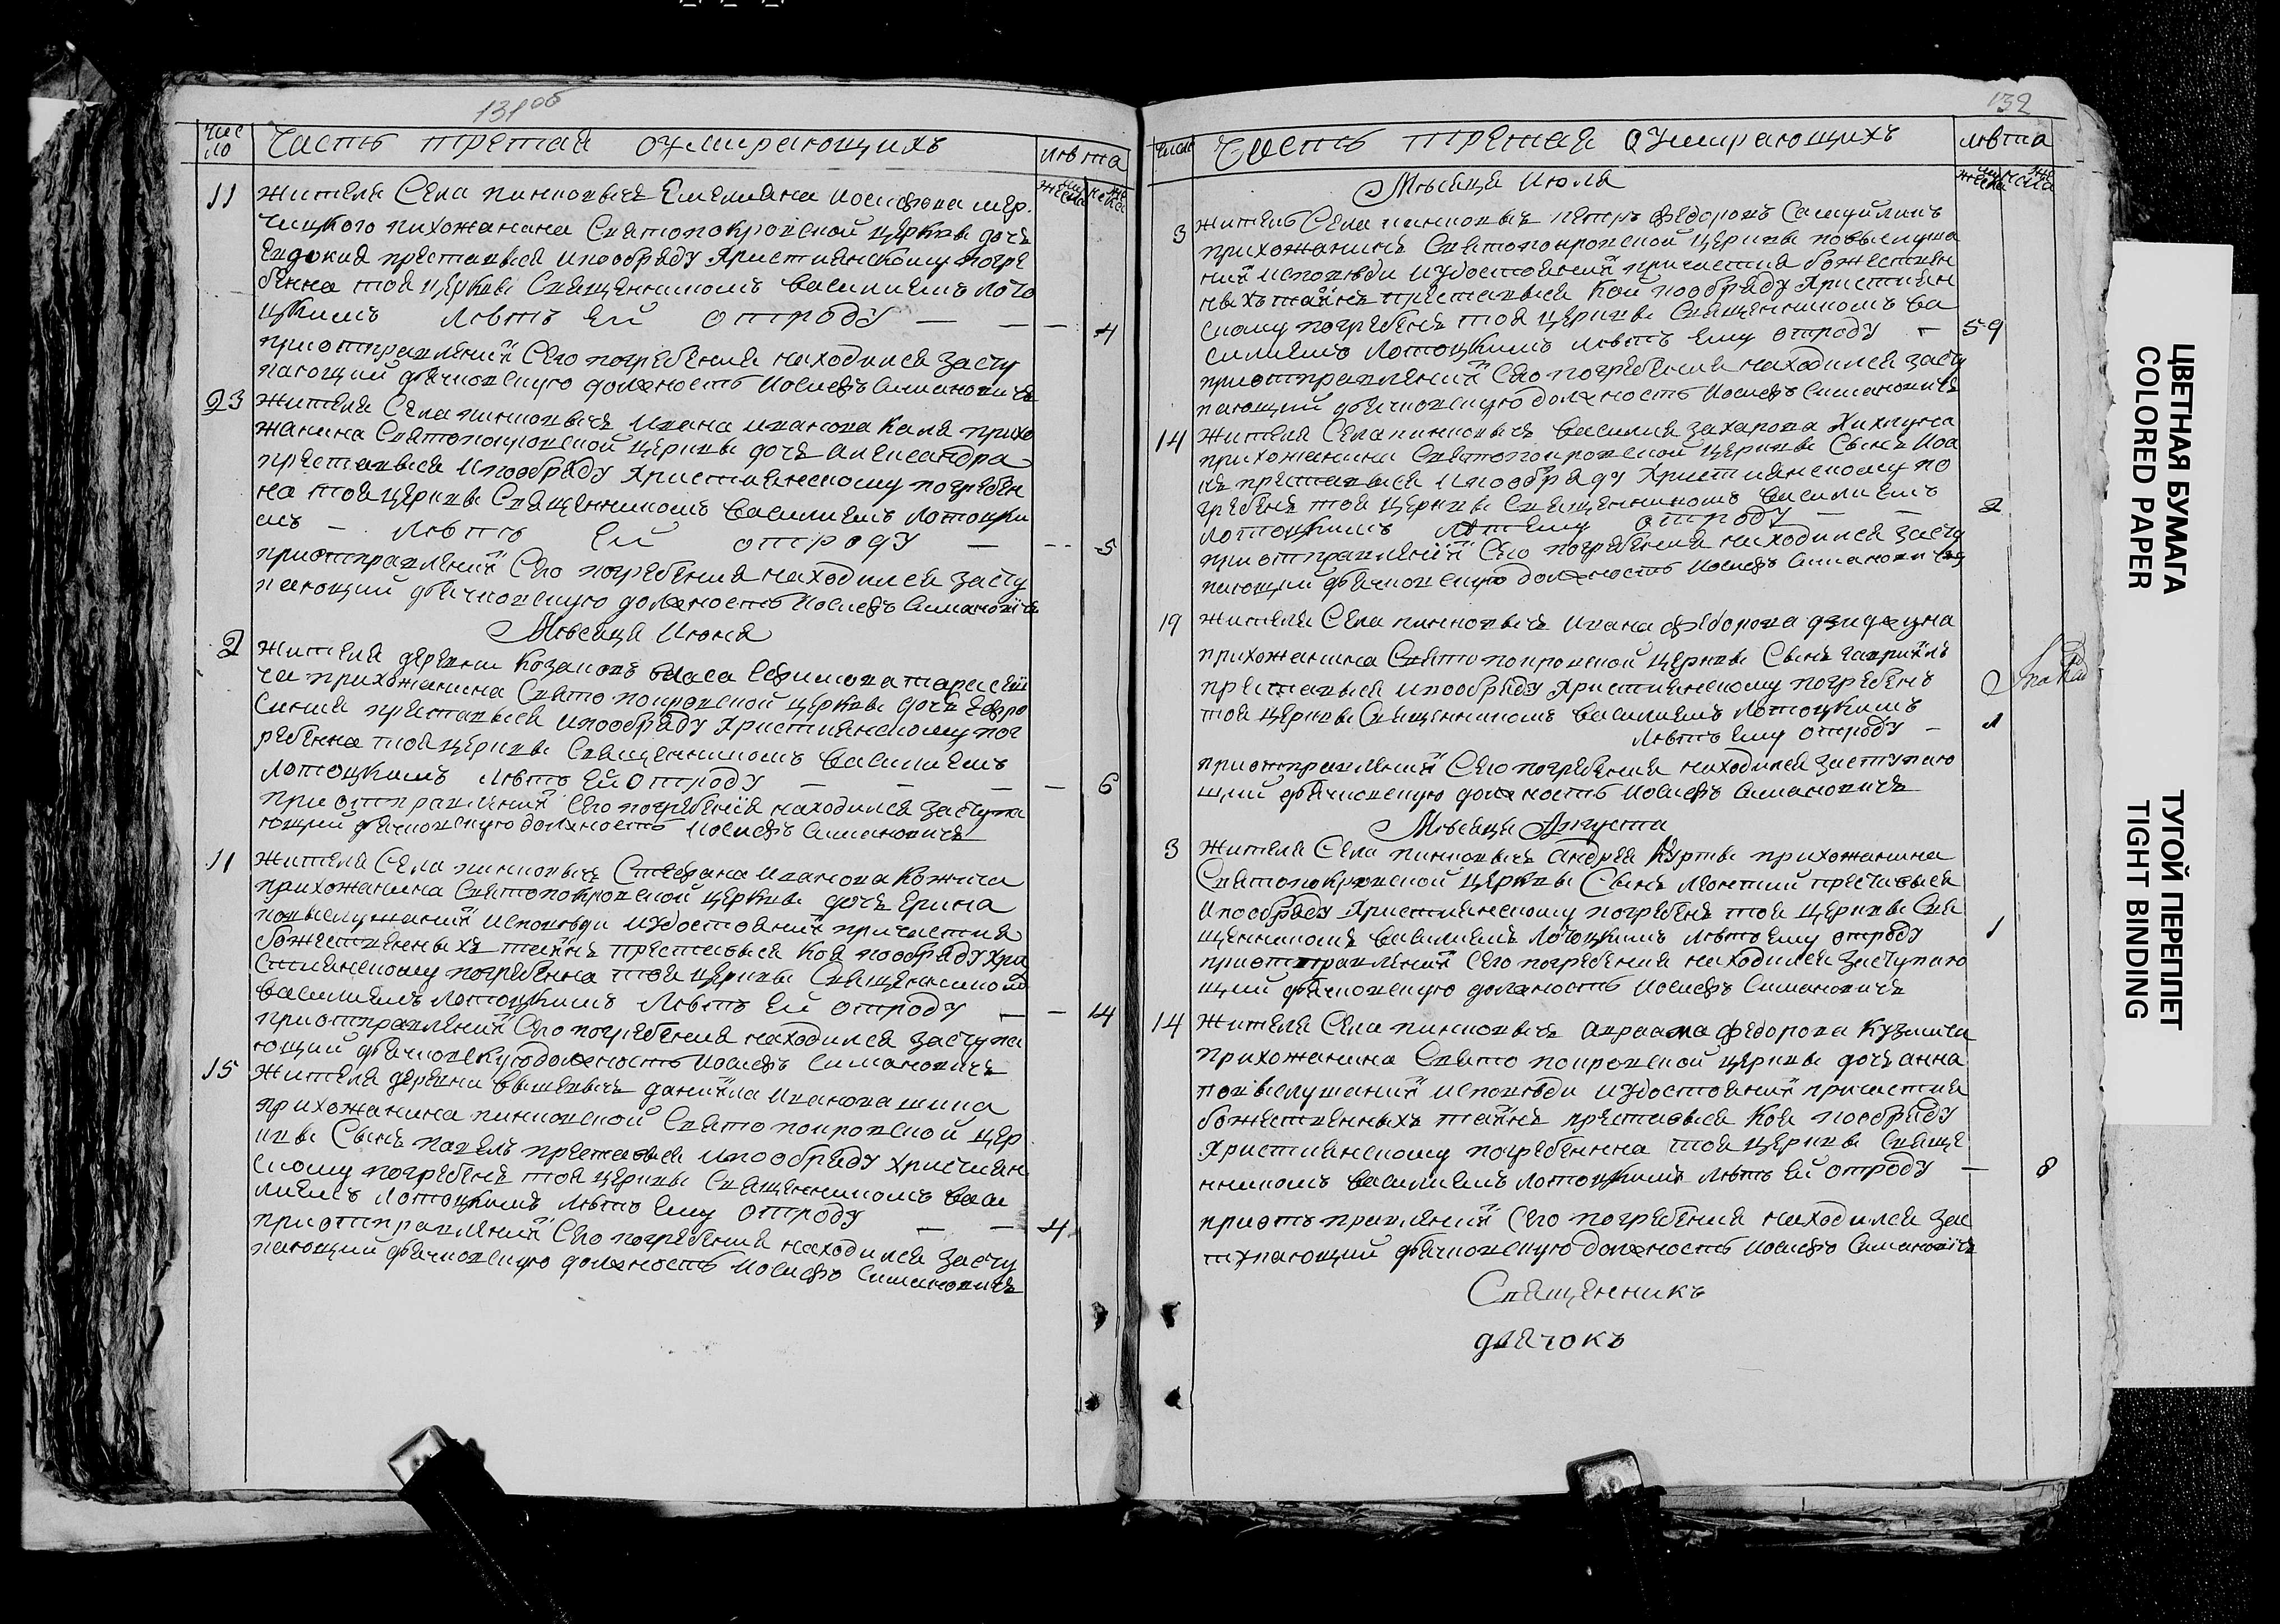 131об
Чис
ло
Часть третая оумирающихъ
лѣта
мужеска
женска
11 Жителя Села пинковичъ Емелияна Иосифова мер-
чицкого прихожанина Святопокровской церкви дочь
Евдокия преставися и пообряду Християнскому погре
бенна тоя церкви Священникомъ Василиемъ Лото
цкимъ лѣтъ ей отроду — — — 4
приотправлении Сего погребения находился засту
пающий дьячковскую должность Иосифъ Симановичь
23 Жителя Села пинковичъ Ивана Иванова Каля прихо
жанина Святопокровской церкви дочь александра
преставися и пообряду Християнскому погребен
на тоя церкви Священникомъ Василиемъ Лотоцки
мъ — лѣтъ ей отроду — -- 5
приотправлении Сего погребения находился засту
пающий дьячковскую должность Иосифъ Симановичь
Мѣсяца Июня
2 Жителя деревни Козаковъ Власа Ефимова тарасеви
ча прихожанина Свято покровской церкви дочь Евфро
синия преставися и пообряду Християнскому пог
ребенна тоя церкви Священникомъ Василиемъ
Лотоцкимъ лѣтъ ей отроду — — — — 6
приотправлении Сего погребения находился заступа
ющий дьячковскую должность Иосифъ Симановичь
11 Жителя Села пинковичъ Стефана Иванова Кожича
прихожанина Святопокровской церкви дочь Ерина
повыслушании исповѣди и удостоянии причастия
божественныхъ тайнъ преставися Коя пообряду хри
стиянскому погребенна тоя церкви Священникомъ
Василиемъ Лотоцкимъ лѣтъ ей отроду — — 14
приотправлении Сего погребения находился заступа
ющий дьячковскую должность Иосифъ Симановичь
15 Жителя деревни Вышевичъ даниила Иванова
прихожанина пинковской Свято покровской цер
кви Сынъ павелъ преставися и пообряду християн
скому погребенъ тоя церкви Священникомъ Васи
лиемъ Лотоцкимъ лѣтъ ему отроду — — 4
приотправлении Сего погребения находился засту
пающий дьячковскую должность Иосифъ Симановичь
132
Число
Часть третая оумирающихъ
лѣта
мужеска
женска
Мѣсяца Июля
3 Житель Села пинковичъ петръ Федоровъ Самуйликъ
прихожанинъ Святопокровской церкви повыслуша
нии исповѣди и удостоянии причастия божествен
ныхъ тайнъ преставися Кой пообряду Християн
скому погребенъ тоя церкви Священникомъ Ва
силиемъ Лотоцкимъ лѣтъ ему отроду — 59
приотправлении Сего погребения находился засту
пающий дьячковскую должность Иосифъ Симановичь
14 Жителя Села пинковичъ Василия Захарова
прихожанина Святопокровской церкви Сынъ Иоа
нъ преставися и пообряду Християнскому по
гребенъ тоя церкви Священникомъ Василиемъ
Лотоцкимъ лѣт ему отроду — — 2
приотправлении Сего погребения находился засту
пающий дьячковскую должность Иосифъ Симановичь
19 Жителя Села пинковичъ Ивана Федорова
прихожанина Свято покровской церкви Сынъ гавриилъ
преставися и пообряду Християнскому погребенъ
тоя церкви Священникомъ Василиемъ Лотоцкимъ
лѣтъ ему отроду — 1
приотправлении Сего погребения находился заступаю
щий дьячковскую должность Иосифъ Симановичь
Мѣсяца Августа
3 Жителя Села пинковичъ андрея Куртве прихожанина
Святопокровской церкви Сынъ Леонтий преставися
и пообряду Християнскому погребенъ тоя церкви Свя
щенникомъ Василиемъ Лотоцкимъ лѣтъ ему отроду 1
приотправлении Сего погребения находился заступаю
щий дьячковскую должность Иосифъ Симановичь
14 Жителя Села пинковичъ авраама Федорова Кузмича
прихожанина Свято покровской церкви дочь анна
повыслушании исповѣди и удостоянии причастия
божественныхъ тайнъ преставися Коя пообряду
Християнскому погребенна тоя церкви Свяще
нникомъ Василиемъ Лотоцкимъ лѣтъ ей отроду — 8
приотъправлении Сего погребения находился зас
тупающий дьячковскую должность Иосифъ Симановичь
Священникъ
дьячокъ
ЦВЕТНАЯ БУМАГА
COLORED PAPER
ТУГОЙ ПЕРЕПЛЕТ
TIGHT BINDING